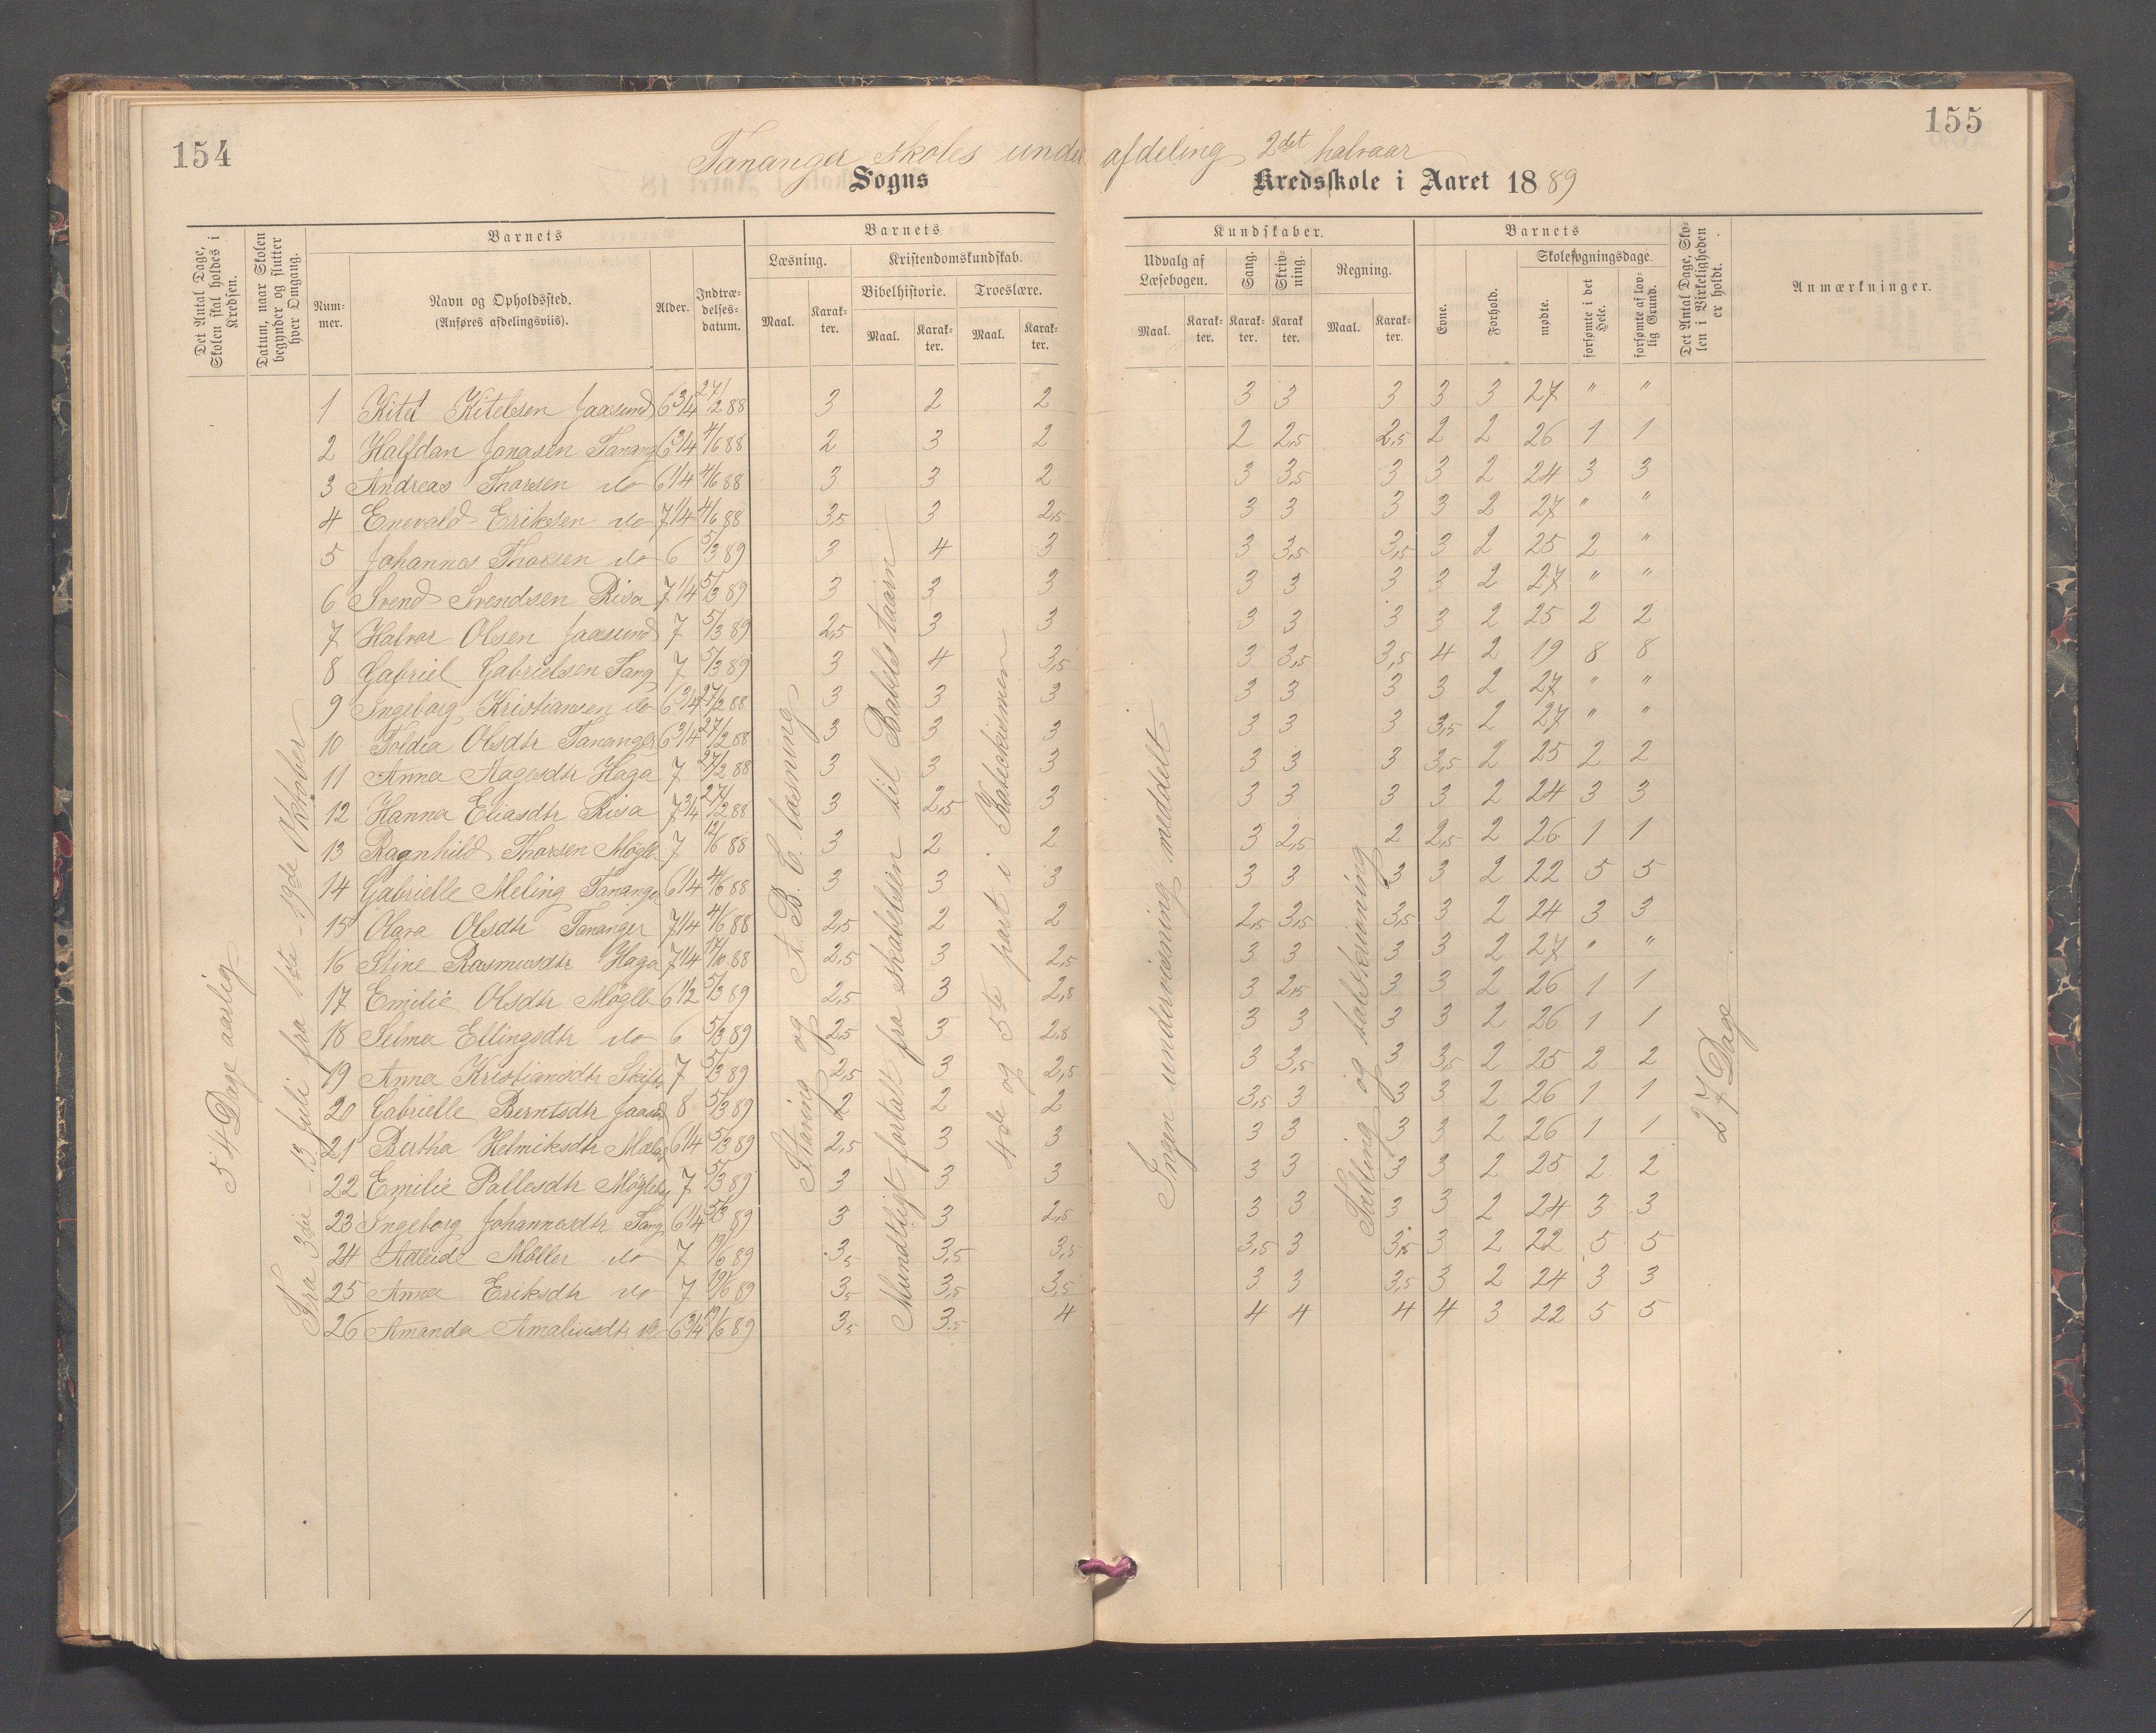 154
155
Tananger skoles under afdeling 2det halvaar
Sogns Kredsskole i Aaret 1889
Det Antal Dage, Skolen skal holdes i Kredsen.
Datum, naar Skolen begynder og slutter hver Omgang.
Barnets
Nummer.
Navn og Opholdssted. (Anføres afdelingsviis).
Alder.
Indtrædelses-datum.
Barnets Kundskaber.
Læsning.
Maal.
Karakter.
Kristendomskundskab.
Bibelhistorie.
Maal.
Karakter.
Troeslære.
Maal.
Karakter.
Udvalg af Læsebogen.
Maal.
Karakter.
Sang.
Karakter.
Skrivning.
Karakter.
Regning.
Maal.
Karakter.
Barnets
Evne.
Forhold.
Skolesøgningsdage.
mødte.
forsømte i det Hele.
forsømte af lovlig Grund.
Det Antal Dage, Skolen i Virkeligheden er holdt.
Anmærkninger.
54 Dage aarlig
Fra 3die - 13 juli fra 1ste - 19de Oktober
Staving og A. B. C. læsning
Mundtligt fortalt fra skabelsen til Babelstaarn
4de og 5te part i Katechismen
Ingen undervisning meddelt
Tælling og talskrivning
27 Dage
1 Kitel Kitelsen Jaasund 6 3/4 27/2 88 3 2 2 3 3 3 3 3 27 " "
2 Halfdan Jonasen Tanang 6 3/4 4/6 88 2 3 2 2 2,5 2,5 2 2 26 1 1
3 Andreas Thorsen do 6 1/4 4/6 88 3 3 2 3 3,5 3 3 2 24 3 3
4 Enevald Eriksen do 7 1/4 4/6 88 3,5 3 2,5 3 3 3 3 2 27 " "
5 Johannes Thorsen do 6 5/3 89 3 4 3 3 3,5 3,5 3 2 25 2 "
6 Svend Svendsen Risa 7 1/4 5/3 89 3 3 3 3 3 3 3 2 27 " "
7 Halvor Olsen Jaasund 7 5/3 89 2,5 3 3 3 3 3 3 2 25 2 2
8 Gabriel Gabrielsen Tang 7 5/3 89 3 4 3,5 3 3,5 3,5 4 2 19 8 8
9 Ingeborg Kristiansen do 6 3/4 27/2 88 3 3 3 3 3 3 3 2 27 " "
10 Toldia Olsdtr Tananger 6 3/4 27/2 88 3 3 3 3 3 3 3,5 2 27 " "
11 Anna Aagesdtr Haga 7 27/2 88 3 3 3 3 3 3 3,5 2 25 2 2
12 Hanna Eliasdtr Risa 7 3/4 27/2 88 3 2,5 3 3 3 3 3 2 24 3 3
13 Ragnhild Thorsen Møgle 7 12/6 88 3 2 2 3 2,5 2 2,5 2 26 1 1
14 Gabrielle Meling Tanange 6 1/4 4/6 88 3 3 3 3 3 3 3 2 22 5 5
15 Olava Olsdtr Tananger 7 1/4 4/6 88 2,5 2 2 2,5 3,5 3,5 3 2 24 3 3
16 Stine Rasmusdtr Haga 7 1/4 17/10 88 2,5 3 2,5 3 3 3 3 2 27 " "
17 Emilie Olsdtr Møgle 6 1/2 5/3 89 2,5 3 2,8 3 2,5 3 3 2 26 1 1
18 Selma Ellingsdtr do 6 5/3 89 2,5 3 2,8 3 3 3 3 2 26 1 1
19 Anna Kristiansdtr Skift 7 5/3 89 2,5 3 2,5 3 3,5 3 3,5 2 25 2 2
20 Gabrielle Berntsdtr Jaasd 8 5/3 89 2 2 2 3,5 3 3 3 2 26 1 1
21 Bertha Helmiksdtr 6 1/4 5/3 89 2,5 3 3 3 3 3 3 2 26 1 1
22 Emilie Pallesdtr Møgleby 7 5/3 89 3 3 3 3 3 3 3 2 25 2 2
23 Ingeborg Johannesdtr Tang 6 1/4 5/3 89 3 3 2,5 3 3 3 3 2 24 3 3
24 Adleide Møller do 7 19/6 89 3,5 3,5 3,5 3,5 3 3,5 3 2 22 5 5
25 Anna Eriksdtr do 7 19/6 89 3,5 3,5 3,5 3 3 3,5 3 2 24 3 3
26 Amanda Amaliusdtr do 6 3/4 19/6 89 3,5 3,5 4 4 4 4 4 3 22 5 5